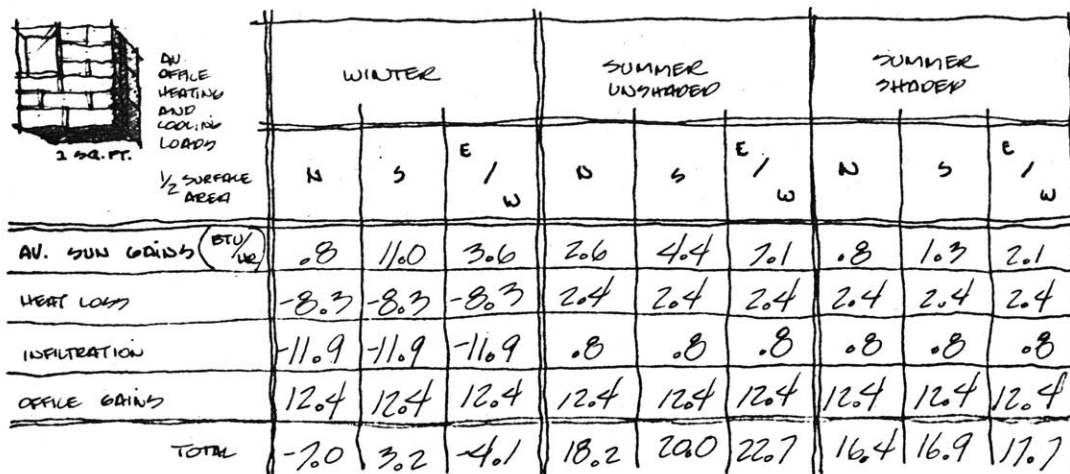 AN
OFFICE
HEATING
AND
COOLING
LOADS
1 SQ. FT.
1/2 SURFACE
AREA
WINTER
SUMMER
UNSHADED
SUMMER
SHADED
N S E/W N S E/W N S E/W
AV. SUN GAINS (BTU/HR) .8 11.0 3.6 2.6 4.4 7.1 .8 1.3 2.1
HEAT LOSS -8.3 -8.3 -8.3 2.4 2.4 2.4 2.4 2.4 2.4
INFILTRATION -11.9 -11.9 -11.9 .8 .8 .8 .8 .8 .8
OFFICE GAINS 12.4 12.4 12.4 12.4 12.4 12.4 12.4 12.4 12.4
TOTAL -7.0 3.2 -4.1 18.2 20.0 22.7 16.4 16.9 17.7